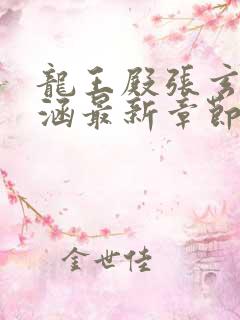 龍王殿張玄
涵最新章節
金世佳